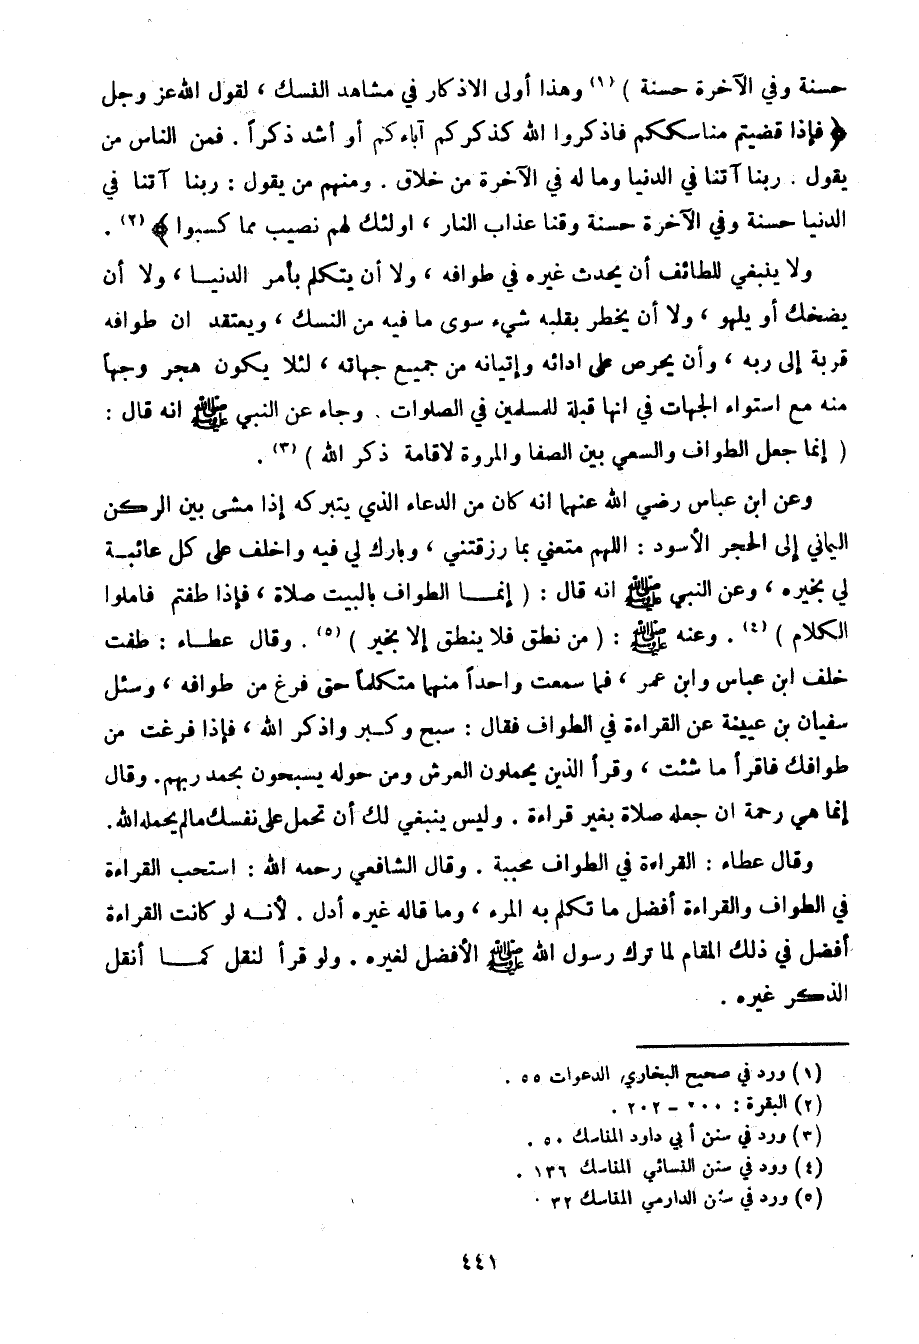 حسنة وفي الآخرة حسنة ) (١) وهذا أولى الاذكار في مشاهد النسك ، لقول الله عز وجل
﴿ فإذا قضيتم مناسككم فاذكروا الله كذكركم آباءكم أو أشد ذكراً . فمن الناس من
يقول . ربنا آتنا في الدنيا وما له في الآخرة من خلاق . ومنهم من يقول : ربنا آتنا في
الدنيا حسنة وفي الآخرة حسنة وقنا عذاب النار ، اولئك لهم نصيب مما كسبوا ﴾ (٢) .
ولا ينبغي للطائف أن يحدث غيره في طوافه ، ولا أن يتكلم بأمر الدنيا ، ولا أن
يضحك أو يلهو ، ولا أن يخطر بقلبه شيء سوى ما فيه من النسك ، ويعتقد ان طوافه
قربة إلى ربه ، وأن يحرص على ادائه وإتيانه من جميع جهاته ، لئلا يكون هجر وجهاً
منه مع استواء الجهات في انها قبلة للمسلمين في الصلوات . وجاء عن النبي ﷺ انه قال :
( إنما جعل الطواف والسعي بين الصفا والمروة لاقامة ذكر الله ) (٣) .
وعن ابن عباس رضي الله عنهما انه كان من الدعاء الذي يتبركه إذا مشى بين الركن
اليماني إلى الحجر الأسود : اللهم متعني بما رزقتني ، وبارك لي فيه واخلف على كل عائبة
لي بخيره ، وعن النبي ﷺ انه قال : ( إنما الطواف بالبيت صلاة ، فإذا طفتم فاملوا
الكلام ) (٤) . وعنه ﷺ : ( من نطق فلا ينطق إلا بخير ) (٥) . وقال عطاء : طفت
خلف ابن عباس وابن عمر ، فما سمعت واحداً منهما متكلماً حتى فرغ من طوافه ، وسئل
سفيان بن عيينة عن القراءة في الطواف فقال : سبح وكبر واذكر الله ، فإذا فرغت من
طوافك فاقرأ ما شئت ، وقرأ الذين يحملون العرش ومن حوله يسبحون بحمد ربهم. وقال
إنما هي رحمة ان جعله صلاة بغير قراءة . وليس ينبغي لك أن تحمل على نفسك مالم يحمله الله.
وقال عطاء : القراءة في الطواف محببة . وقال الشافعي رحمه الله : استحب القراءة
في الطواف والقراءة أفضل ما تكلم به المرء ، وما قاله غيره أدل . لأنه لو كانت القراءة
أفضل في ذلك المقام لما ترك رسول الله ﷺ الأفضل لغيره . ولو قرأ لنقل كما أنقل
الذكر غيره .
(١) ورد في صحيح البخاري الدعوات ٥٥ .
(٢) البقرة : ٢٠٠ – ٢٠٢ .
(٣) ورد في سنن أبي داود المناسك ٥٠ .
(٤) ورد في سنن النسائي المناسك ١٣٦ .
(٥) ورد في سنن الدارمي المناسك ٣٢ .
٤٤١